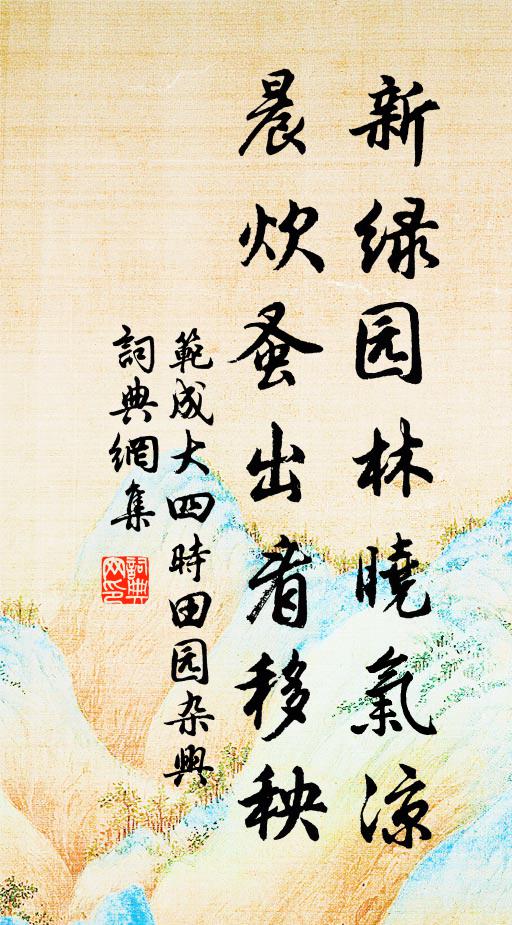 新绿园林曉氣凉
晨炊蚤出看移秧
範成大四時田园杂興
詞典網集
詞典
网印